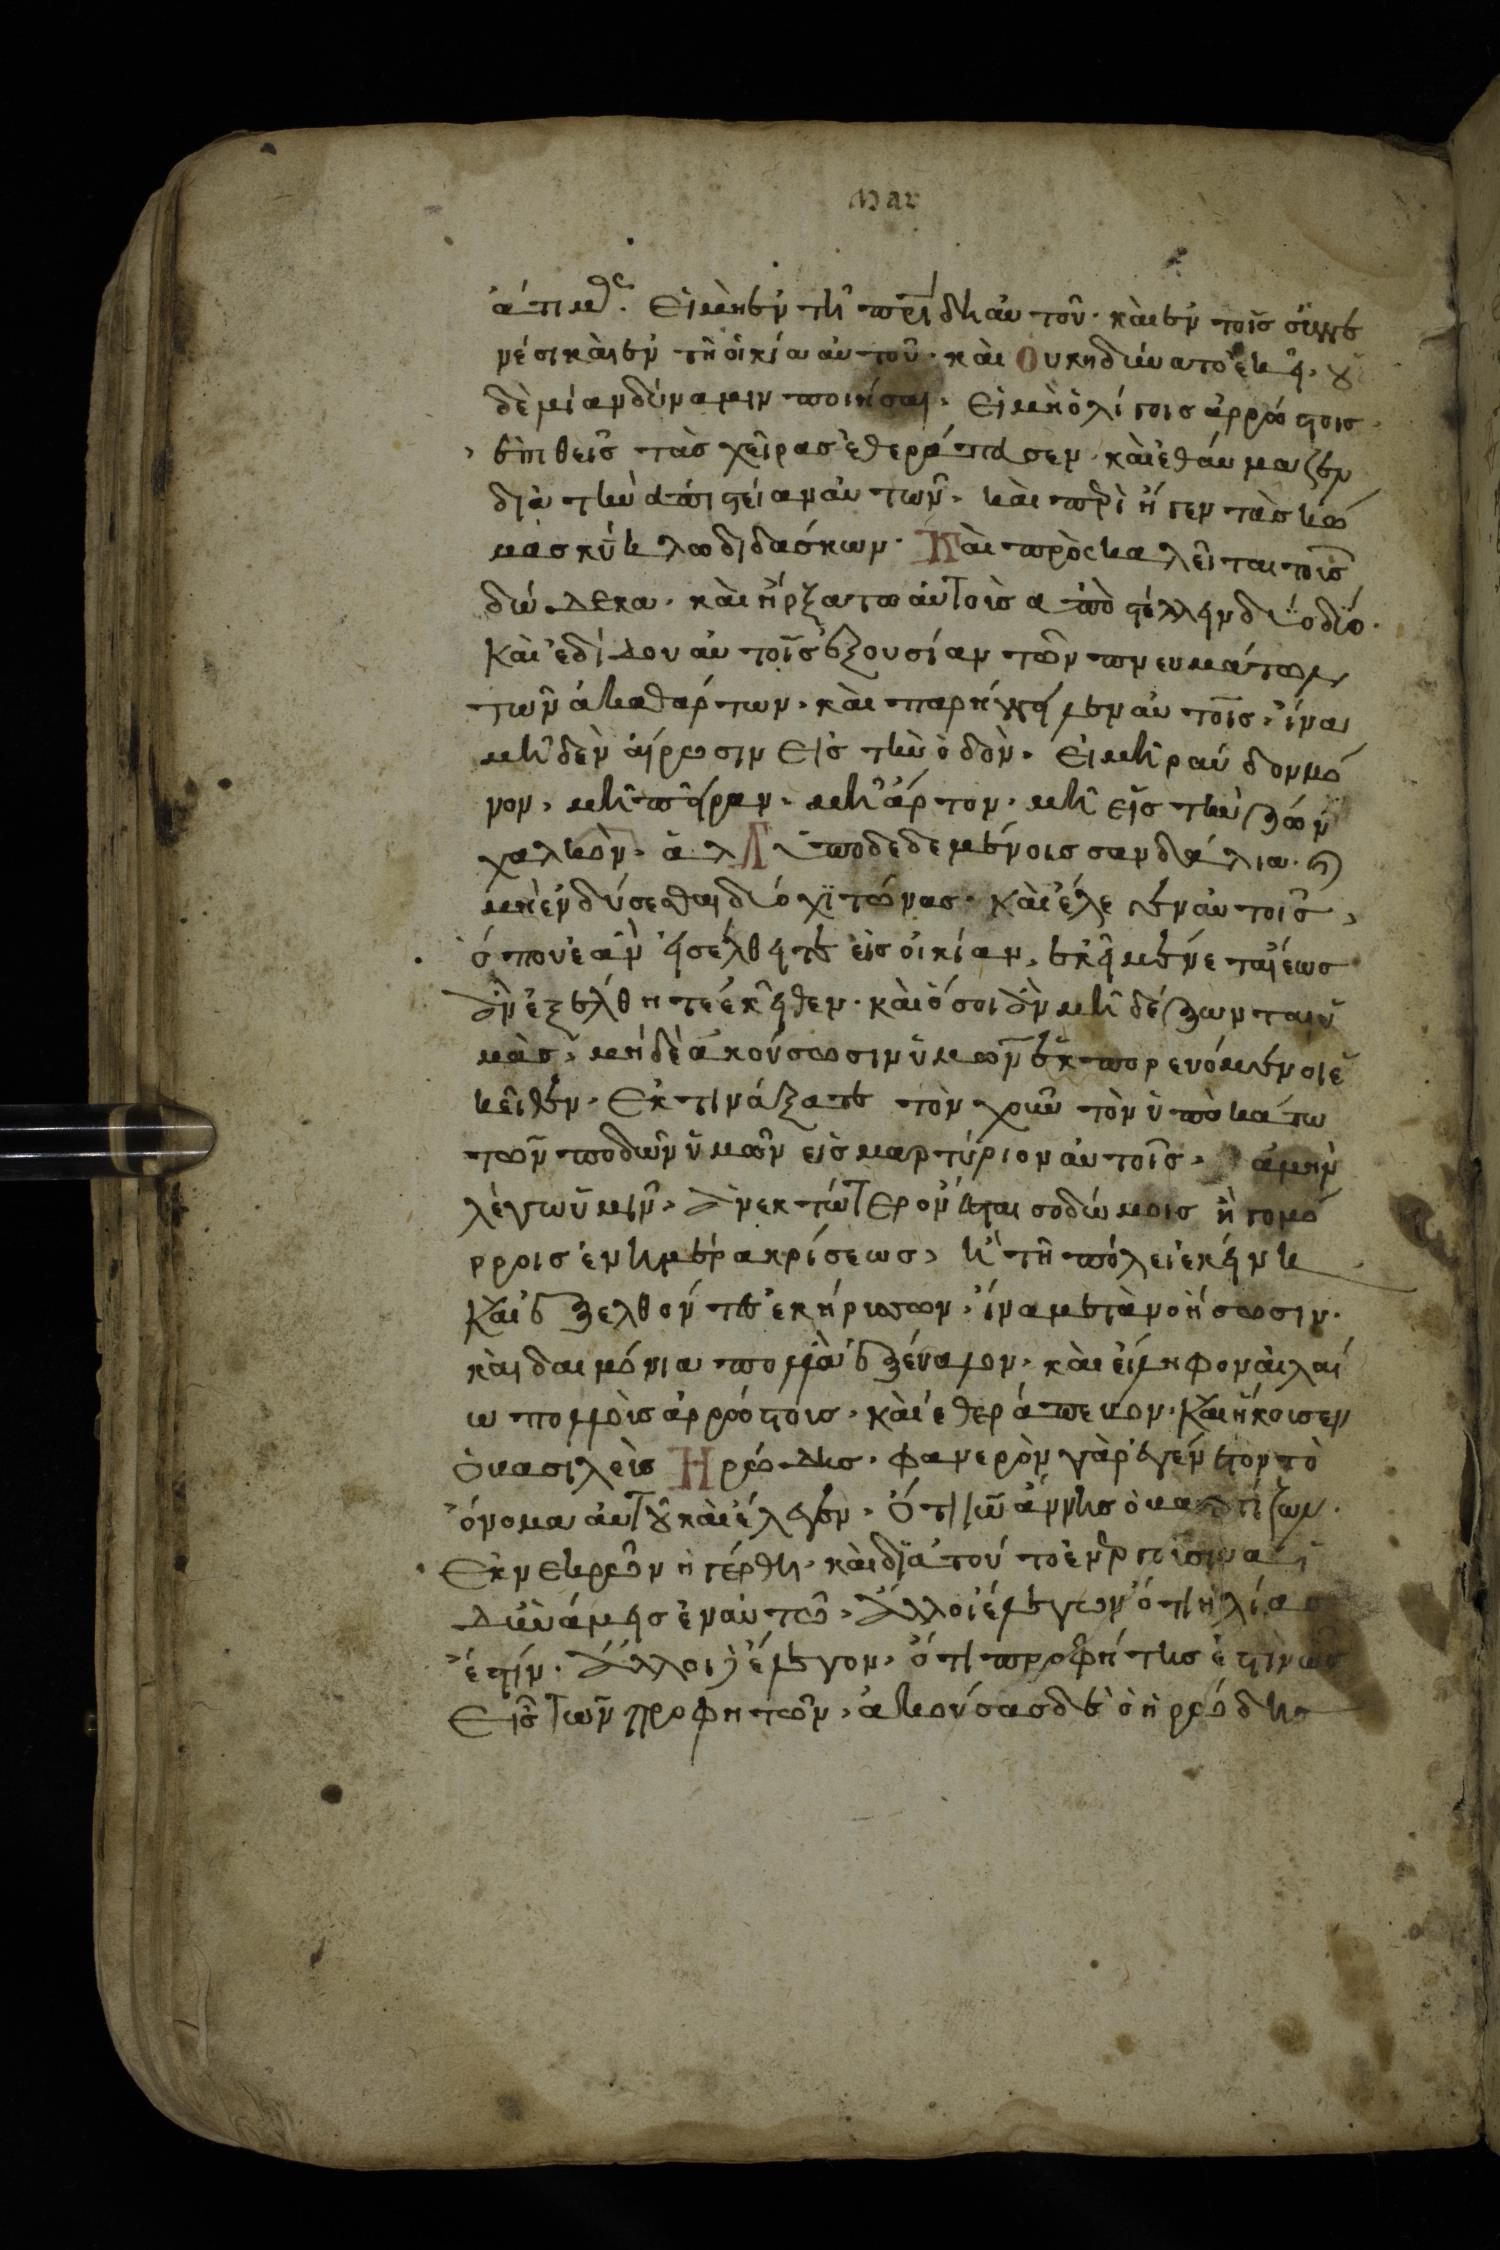 Mar
ἄτιμος. Εἰ μὴ ἐν τῆ πρίδη αὐτοῦ. καὶ ἐν τοῖς συγγε
νέσι καὶ ἐν τῆ οἰκία αὐτοῦ. καὶ Οὐκ ηδύνατο ἐκεῖ. οὐ
δὲ μίαν δύναμιν ποιῆσαι. Εἰ μὴ ὀλίγοις ἀρρώστοις
ἐπιθεὶς τὰς χεῖρας ἐθεράπευσεν. καὶ ἐθαύμαζεν
διὰ τὴν ἀπιστείαν αὐτῶν. καὶ περὶ ἦγεν τὰς κώ
μας κύκλω διδάσκων. Καὶ πρὸς καλεῖται τοῖς
δώδεκα. καὶ ἤρξατω αὐτοὶς ἀποστέλλειν δύο δύο.
Καὶ ἐδίδου αὐτοῖς ἐξουσίαν τῶν πνευμάτων
τῶν ἀκαθάρτων. καὶ παρήγγειλεν αὐτοῖς. ἵνα
μὴ δὲν αἴρωσιν Εἰς τὴν ὁδὸν. Εἰ μὴ ραύδον μό
νον. μὴ πήραν. μὴ ἄρτον. μὴ εἰς τὴν ζών
χαλκὸν. ἀλλ ὑποδεδεμένοις σανδάλια. καὶ
μὴ ἐνδύσεσθαι δύο χιτώνας. καὶ ἔλεγεν αὐτοῖς,
ὅπου ἐὰν εἰσέλθητε εἰς οἰκίαν, ἐκεῖ μένεται ἕως
ἂν ἐξέλθητε ἐκεῖθεν. καὶ ὅσοι ἂν μὴ δέξωνται ὑ
μὰς, μηδὲ ἀκούσωσιν ὑμῶν ἐκπορευόμενοι ἐ
κεῖθεν. Εκτινάξατε τὸν χοῦν τὸν ὑποκάτω
τῶν ποδῶν ὑμῶν εἰς μαρτύριον αὐτοῖς. ἀμὴν
λέγω ὑμῖν. ἀνεκτώτερον ἔσται σοδώμοις ἢ γομό
ρροις ἐν ημέρα κρίσεως, ἢ τῆ πόλει ἐκείνη
Καὶ ἐξελθόντες ἐκήρυσσων. ἵνα μετανοήσωσιν.
καὶ δαιμόνια πολλὰ ἐξέναλον. καὶ εἴληφον ἀιλαί
ω πολλοὶς ἀρρώστοις. καὶ ἐθεράπευον. Καὶ ἤκοισεν
ὁ υασιλεὶς Ηρώδης. φανερὸν γὰρ ἐγένετον τὸ
ὄνομα αὐτοῦ καὶ ἔλεγεν. Ὅτι ἰωάννης ὁ υαπτίζων.
Εκ νεκρῶν ηγέρθη. καὶ διὰ τούτο
δυνάμεις ἐν αὐτῶ. ἄλλοι ἔλεγων ὅτι ηλίας
ἐστίν. ἄλλοι ἔλεγον. ὅτι προφήτης ἐστὶν ὡς
Εἷς τῶν προφητῶν. ἀκούσας δὲ ὁ ηρώδης